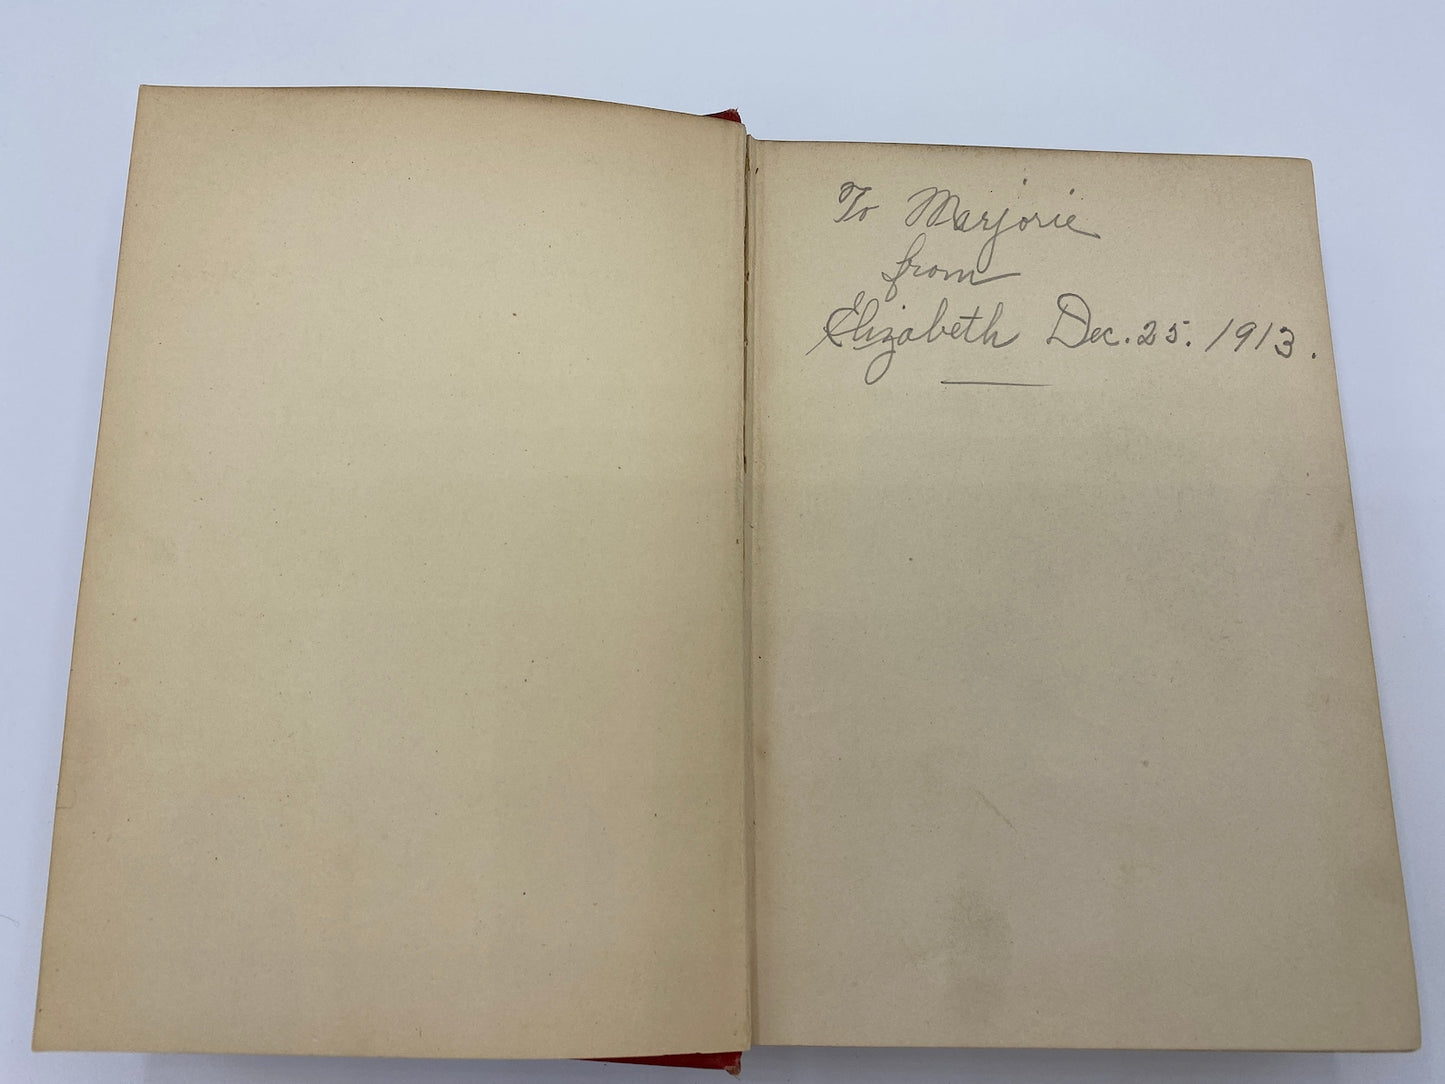 To Marjorie
from
Elizabeth Dec. 25. 1913.